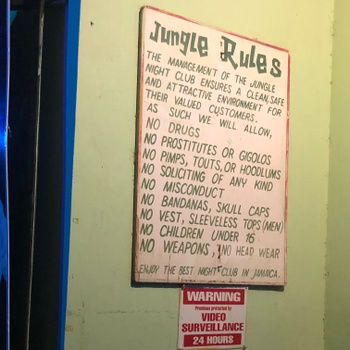 Jungle Rules
THE MANAGEMENT OF THE JUNGLE
NIGHT CLUB ENSURES A CLEAN, SAFE
AND ATTRACTIVE ENVIRONMENT FOR
THEIR VALUED CUSTOMERS.
AS SUCH WE WILL ALLOW,
NO DRUGS
NO PROSTITUTES OR GIGOLOS
NO PIMPS, TOUTS, OR HOODLUMS
NO SOLICITING OF ANY KIND
NO MISCONDUCT
NO BANDANAS, SKULL CAPS
NO VEST, SLEEVELESS TOPS (MEN)
NO CHILDREN UNDER 16
NO WEAPONS, NO HEAD WEAR
ENJOY THE BEST NIGHT CLUB IN JAMAICA.
WARNING
Premises protected by
VIDEO
SURVEILLANCE
24 HOURS